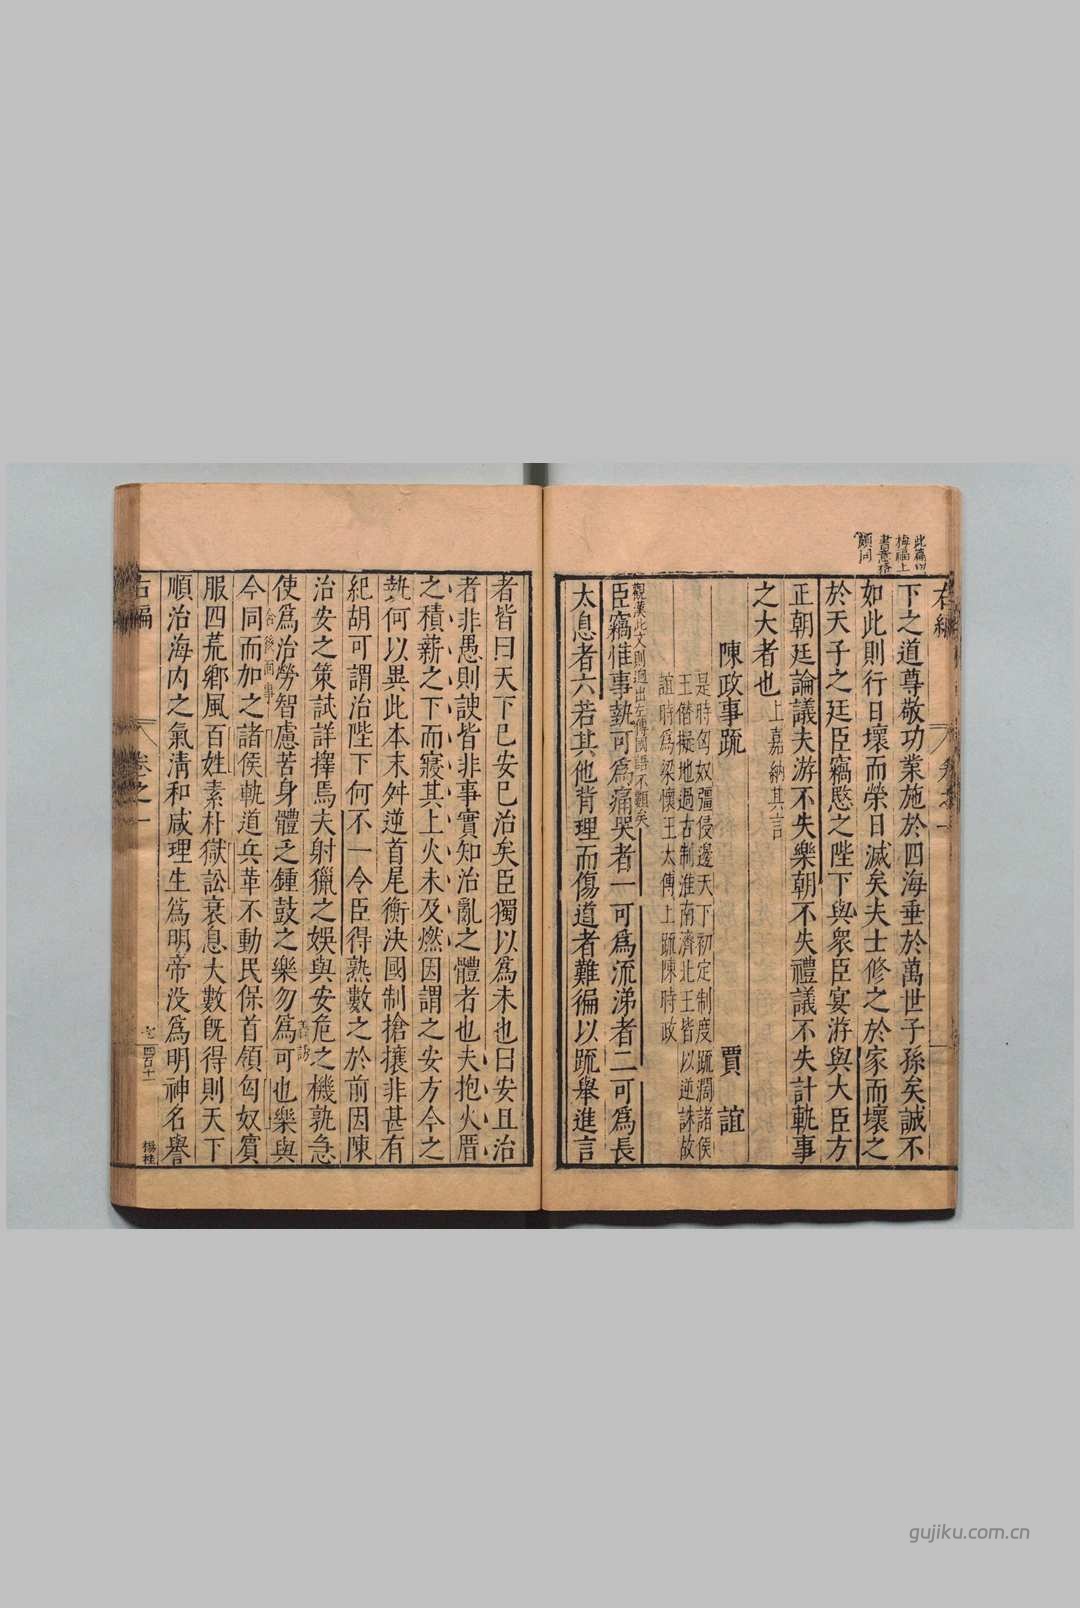 此篇以
梅福上
書意格
顧問
右編
下之道尊敬功業施於四海垂於萬世子孫矣誠不
如此則行日壞而榮日滅矣夫士修之於家而壞之
於天子之廷臣竊愍之陛下與衆臣宴游與大臣方
正朝廷論議夫游不失樂朝不失禮議不失計軌事
之大者也上嘉納其言
陳政事疏 賈誼
是時匈奴彊侵邊天下初定制度疏濶諸侯
王僭擬地過古制淮南濟北王皆以逆誅故
誼時爲梁懷王太傅上疏陳時政
觀漢此文則過出左傳國語不顧矣
臣竊惟事埶可爲痛哭者一可爲流涕者二可爲長
太息者六若其他背理而傷道者難徧以疏舉進言
者皆曰天下已安已治矣臣獨以爲未也曰安且治
者非愚則諛皆非事實知治亂之體者也夫抱火厝
之積薪之下而寢其上火未及燃因謂之安方今之
埶何以異此本末舛逆首尾衡決國制搶攘非甚有
紀胡可謂治陛下何不一令臣得熟數之於前因陳
治安之策試詳擇焉夫射獵之娛與安危之機孰急
使爲治勞智慮苦身體乏鍾鼓之樂勿爲可也樂與
含後面事
今同而加之諸侯軌道兵革不動民保首領匈奴賓
服四荒鄉風百姓素朴獄訟衰息大數旣得則天下
順治海内之氣淸和咸理生爲明帝没爲明神名譽
右編
卷之一
楊桂
gujiku.com.cn